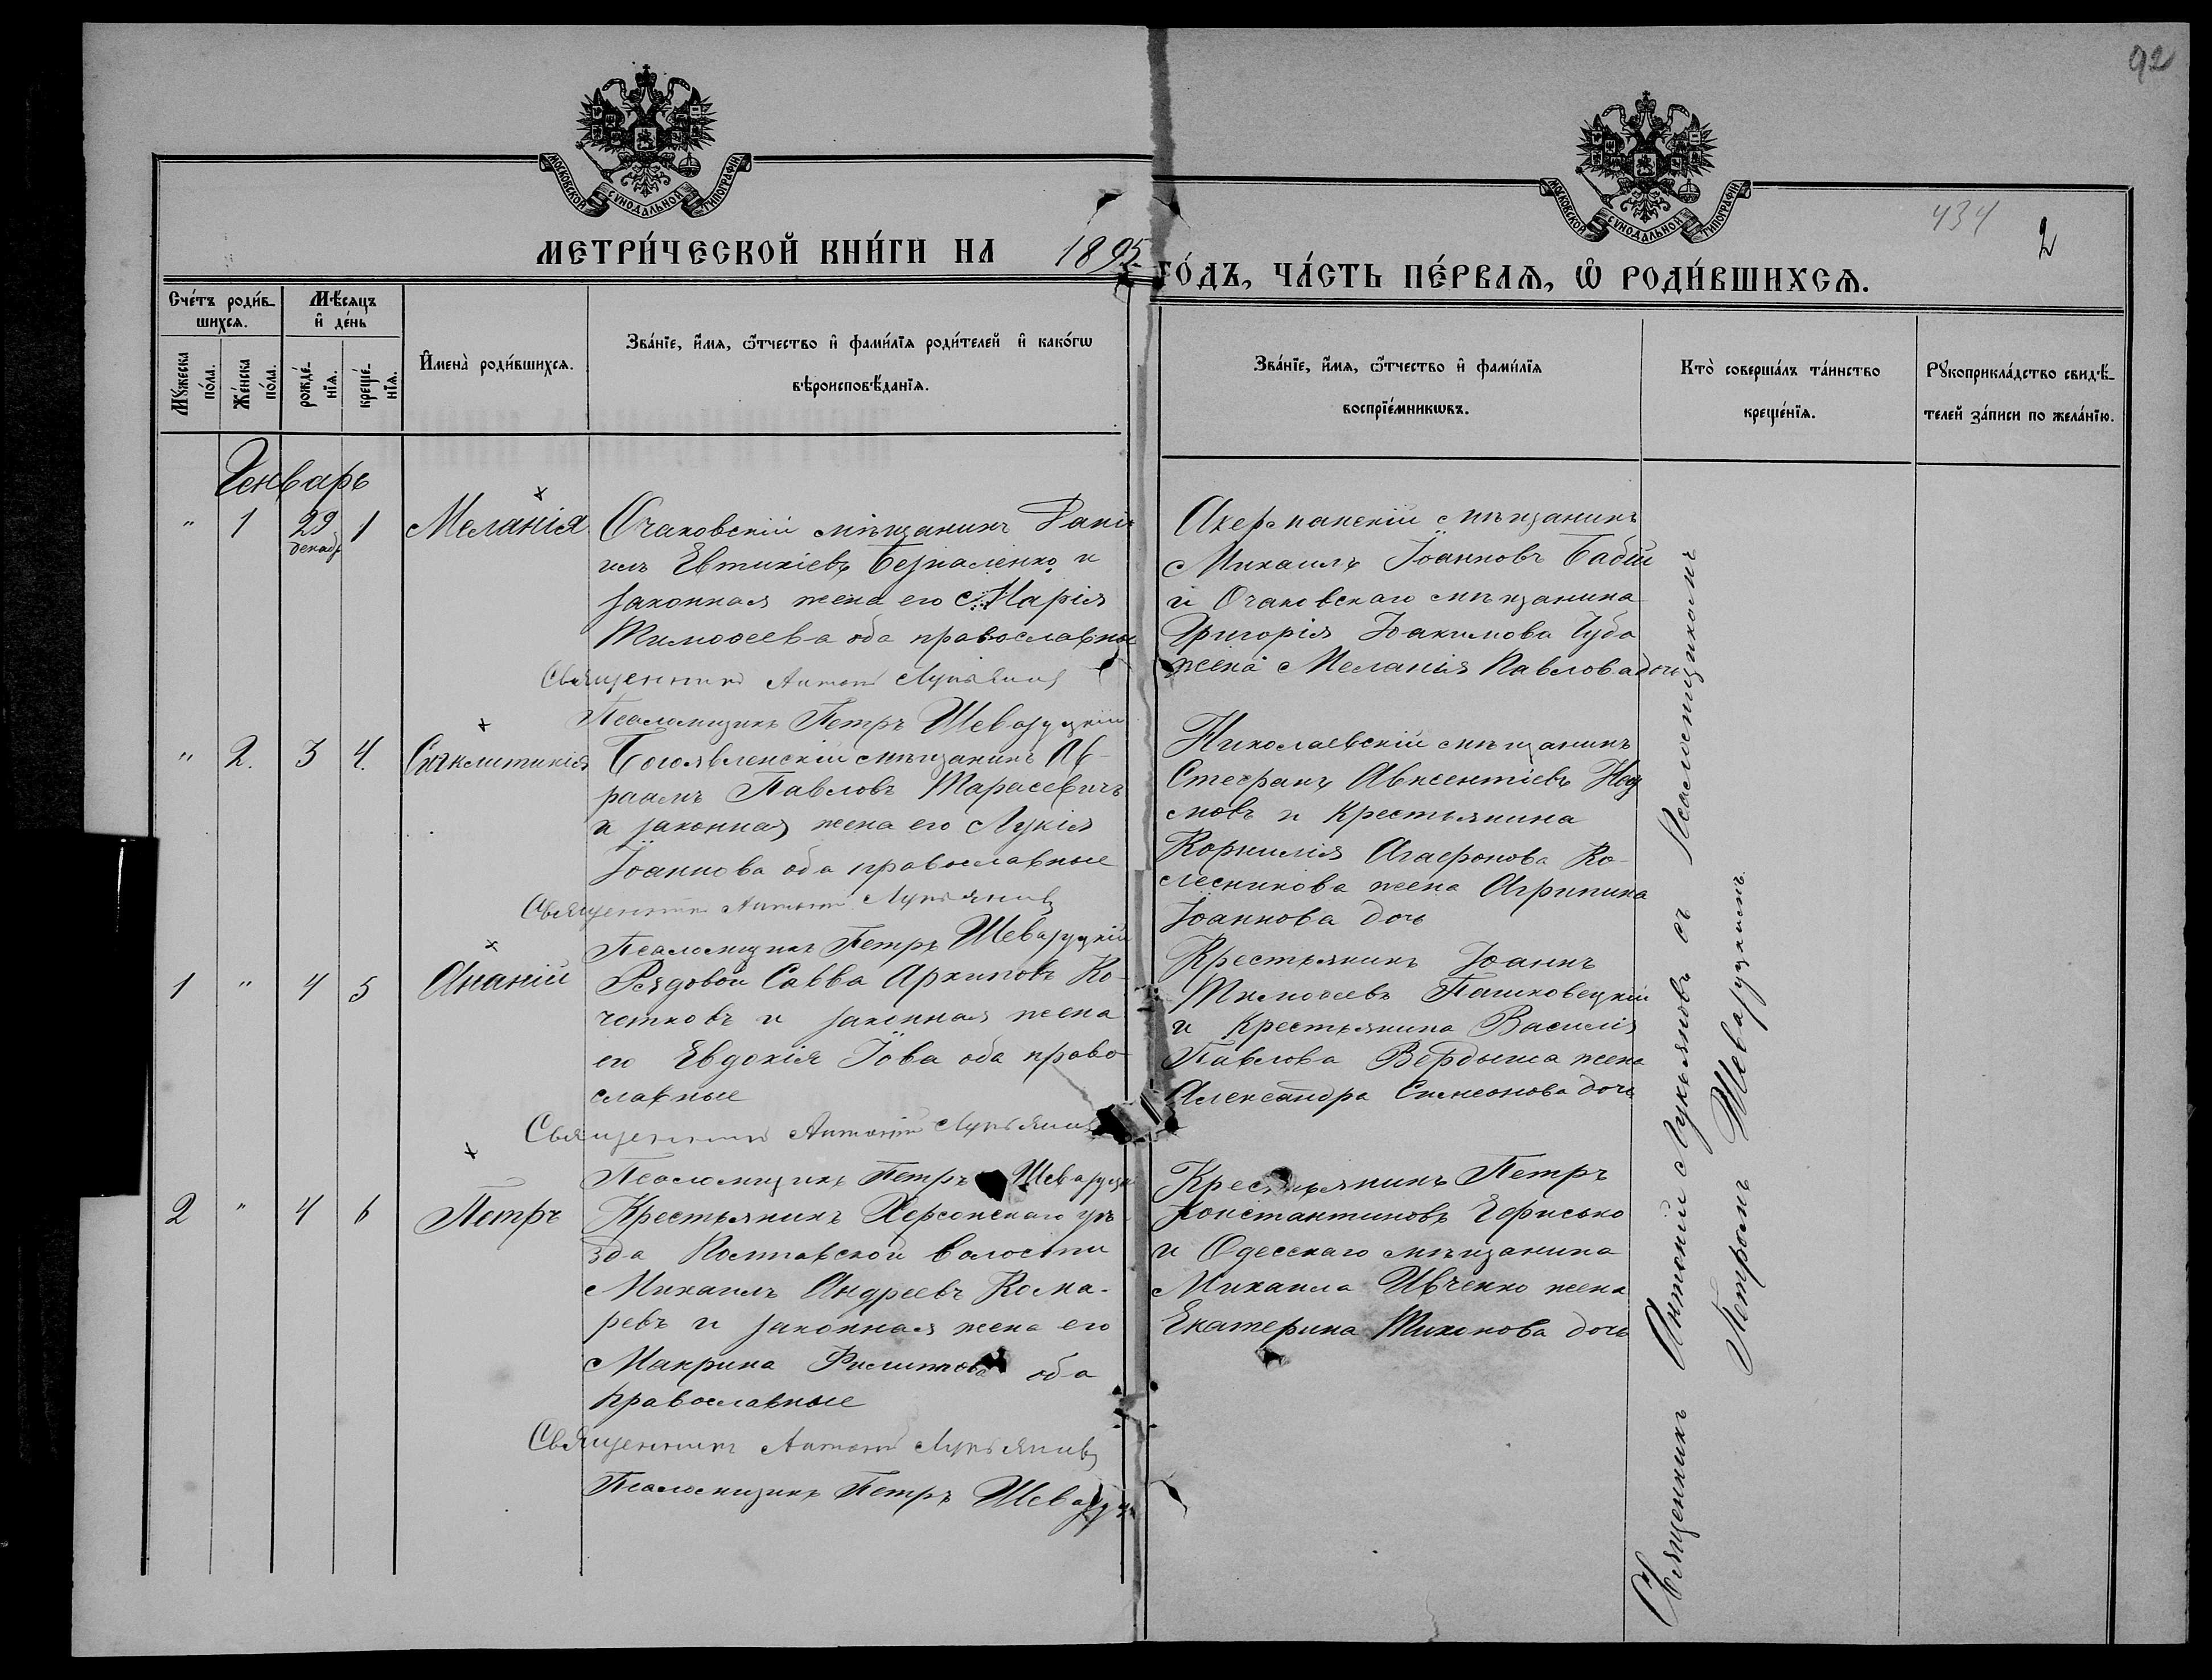 92
МОСКОВСКОЙ СѴНОДАЛЬНОЙ ТИПОГРАФІИ
МОСКОВСКОЙ СѴНОДАЛЬНОЙ ТИПОГРАФІИ
434
2
МЕТРИ́ЧЕСКОЙ КНИ́ГИ НА 1895 ГО́ДЪ, ЧА́СТЬ ПЕ́РВАѦ, Ѡ҆ РОДИ́ВШИХСѦ.
Сче́тъ роди́в-
шихсѧ.
Мѣ́сѧцъ
и҆ де́нь
Мꙋ́жеска
по́ла.
Же́нска
по́ла.
рожде́-
нїѧ.
креще́-
нїѧ.
И҆мена̀ роди́вшихсѧ.
Зва́нїе, и҆́мѧ, ѻ҆́тчество и҆ фами́лїѧ роди́телей и҆ како́гѡ
вѣроисповѣ́данїѧ.
Зва́нїе, и҆́мѧ, ѻ҆́тчество и҆ фами́лїѧ
воспрїе́мникѡвъ.
Кто̀ соверша́лъ та́инство
креще́нїѧ.
Рꙋкоприкла́дство свидѣ́-
телей за́писи по жела́нїю.
Генварь
" 1 29 декаб 1 Меланія
Очаковскій мѣщанинъ Дани
илъ Евтихіевъ и
законная жена его Марія
Тимоѳеева оба православные
Священникъ Антоній Лукьяновъ
Псаломщикъ Петръ Шевазуцкій
Акерманскій мѣщанинъ
Михаилъ Іоанновъ Бабій
и Очаковскаго мѣщанина
Григорія Іоакимова Чуба
жена Меланія Павлова дочь
" 2. 3 4. Сигклитикія
Богоявленскій мѣщанинъ Ав-
раамъ Павловъ Тарасевичъ
и законная жена его Лукія
Іоаннова оба православные
Священникъ Антоній Лукьяновъ
Псаломщикъ Петръ Шевазуцкій
Николаевскій мѣщанинъ
Стефанъ Авксентіевъ
и Крестьянина
Корнилія Агафонова Ко-
лесникова жена Агрипина
Іоаннова дочь
1 " 4 5 Ананій
Рядовой Савва Архиповъ Ко-
чотковъ и законная жена
его Евдокія Іова оба право-
славные
Священникъ Антоній Лукьяновъ
Псаломщикъ Петръ Шевазуцкій
Крестьянинъ Іоаннъ
Тимоѳеевъ Пашковецкій
и Крестьянина Василія
Павлова Вербыша жена
Александра Симеонова дочь
2 " 4 6 Петръ
Крестьянинъ Херсонскаго уѣ
зда Полтавской волости
Михаилъ Андреевъ Кома-
ревъ и законная жена его
Макрина Филиппова оба
православные
Священникъ Антоній Лукьяновъ
Псаломщикъ Петръ Шевазуц
Крестьянинъ Петръ
Константиновъ
и Одесскаго мѣщанина
Михаила Ивченко жена
Екатерина Тихонова дочь
Священникъ Антоній Лукьяновъ съ Псаломщикомъ
Петромъ Шевазуцкимъ